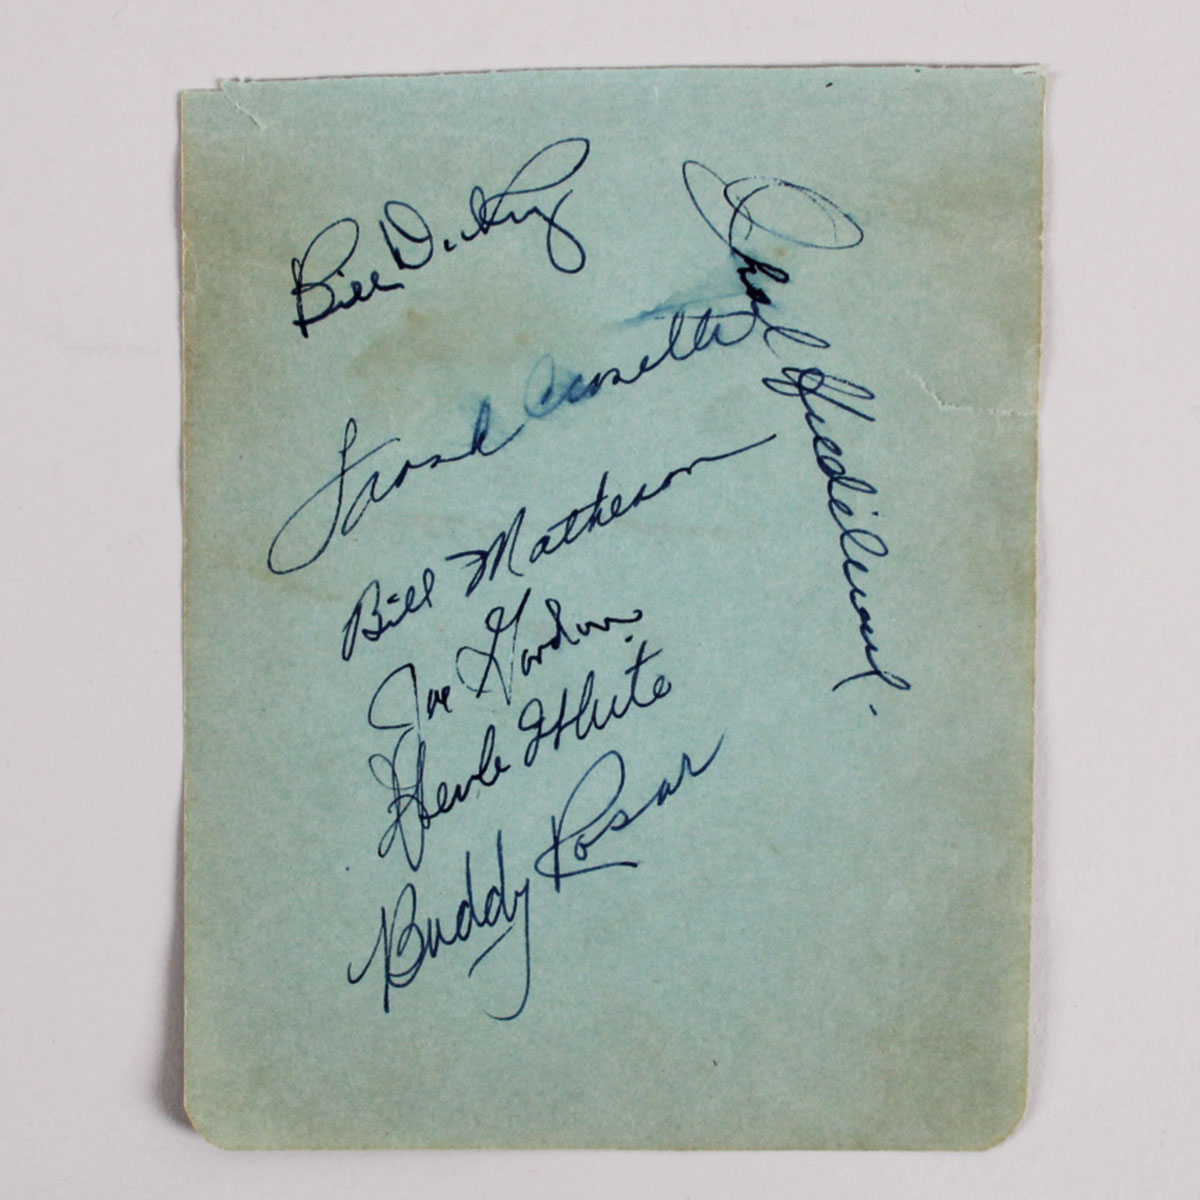 Bill Dickey
Frank Crosetti
Bill Matheson
Joe Gordon
Herb White
Buddy Rosar
Chas